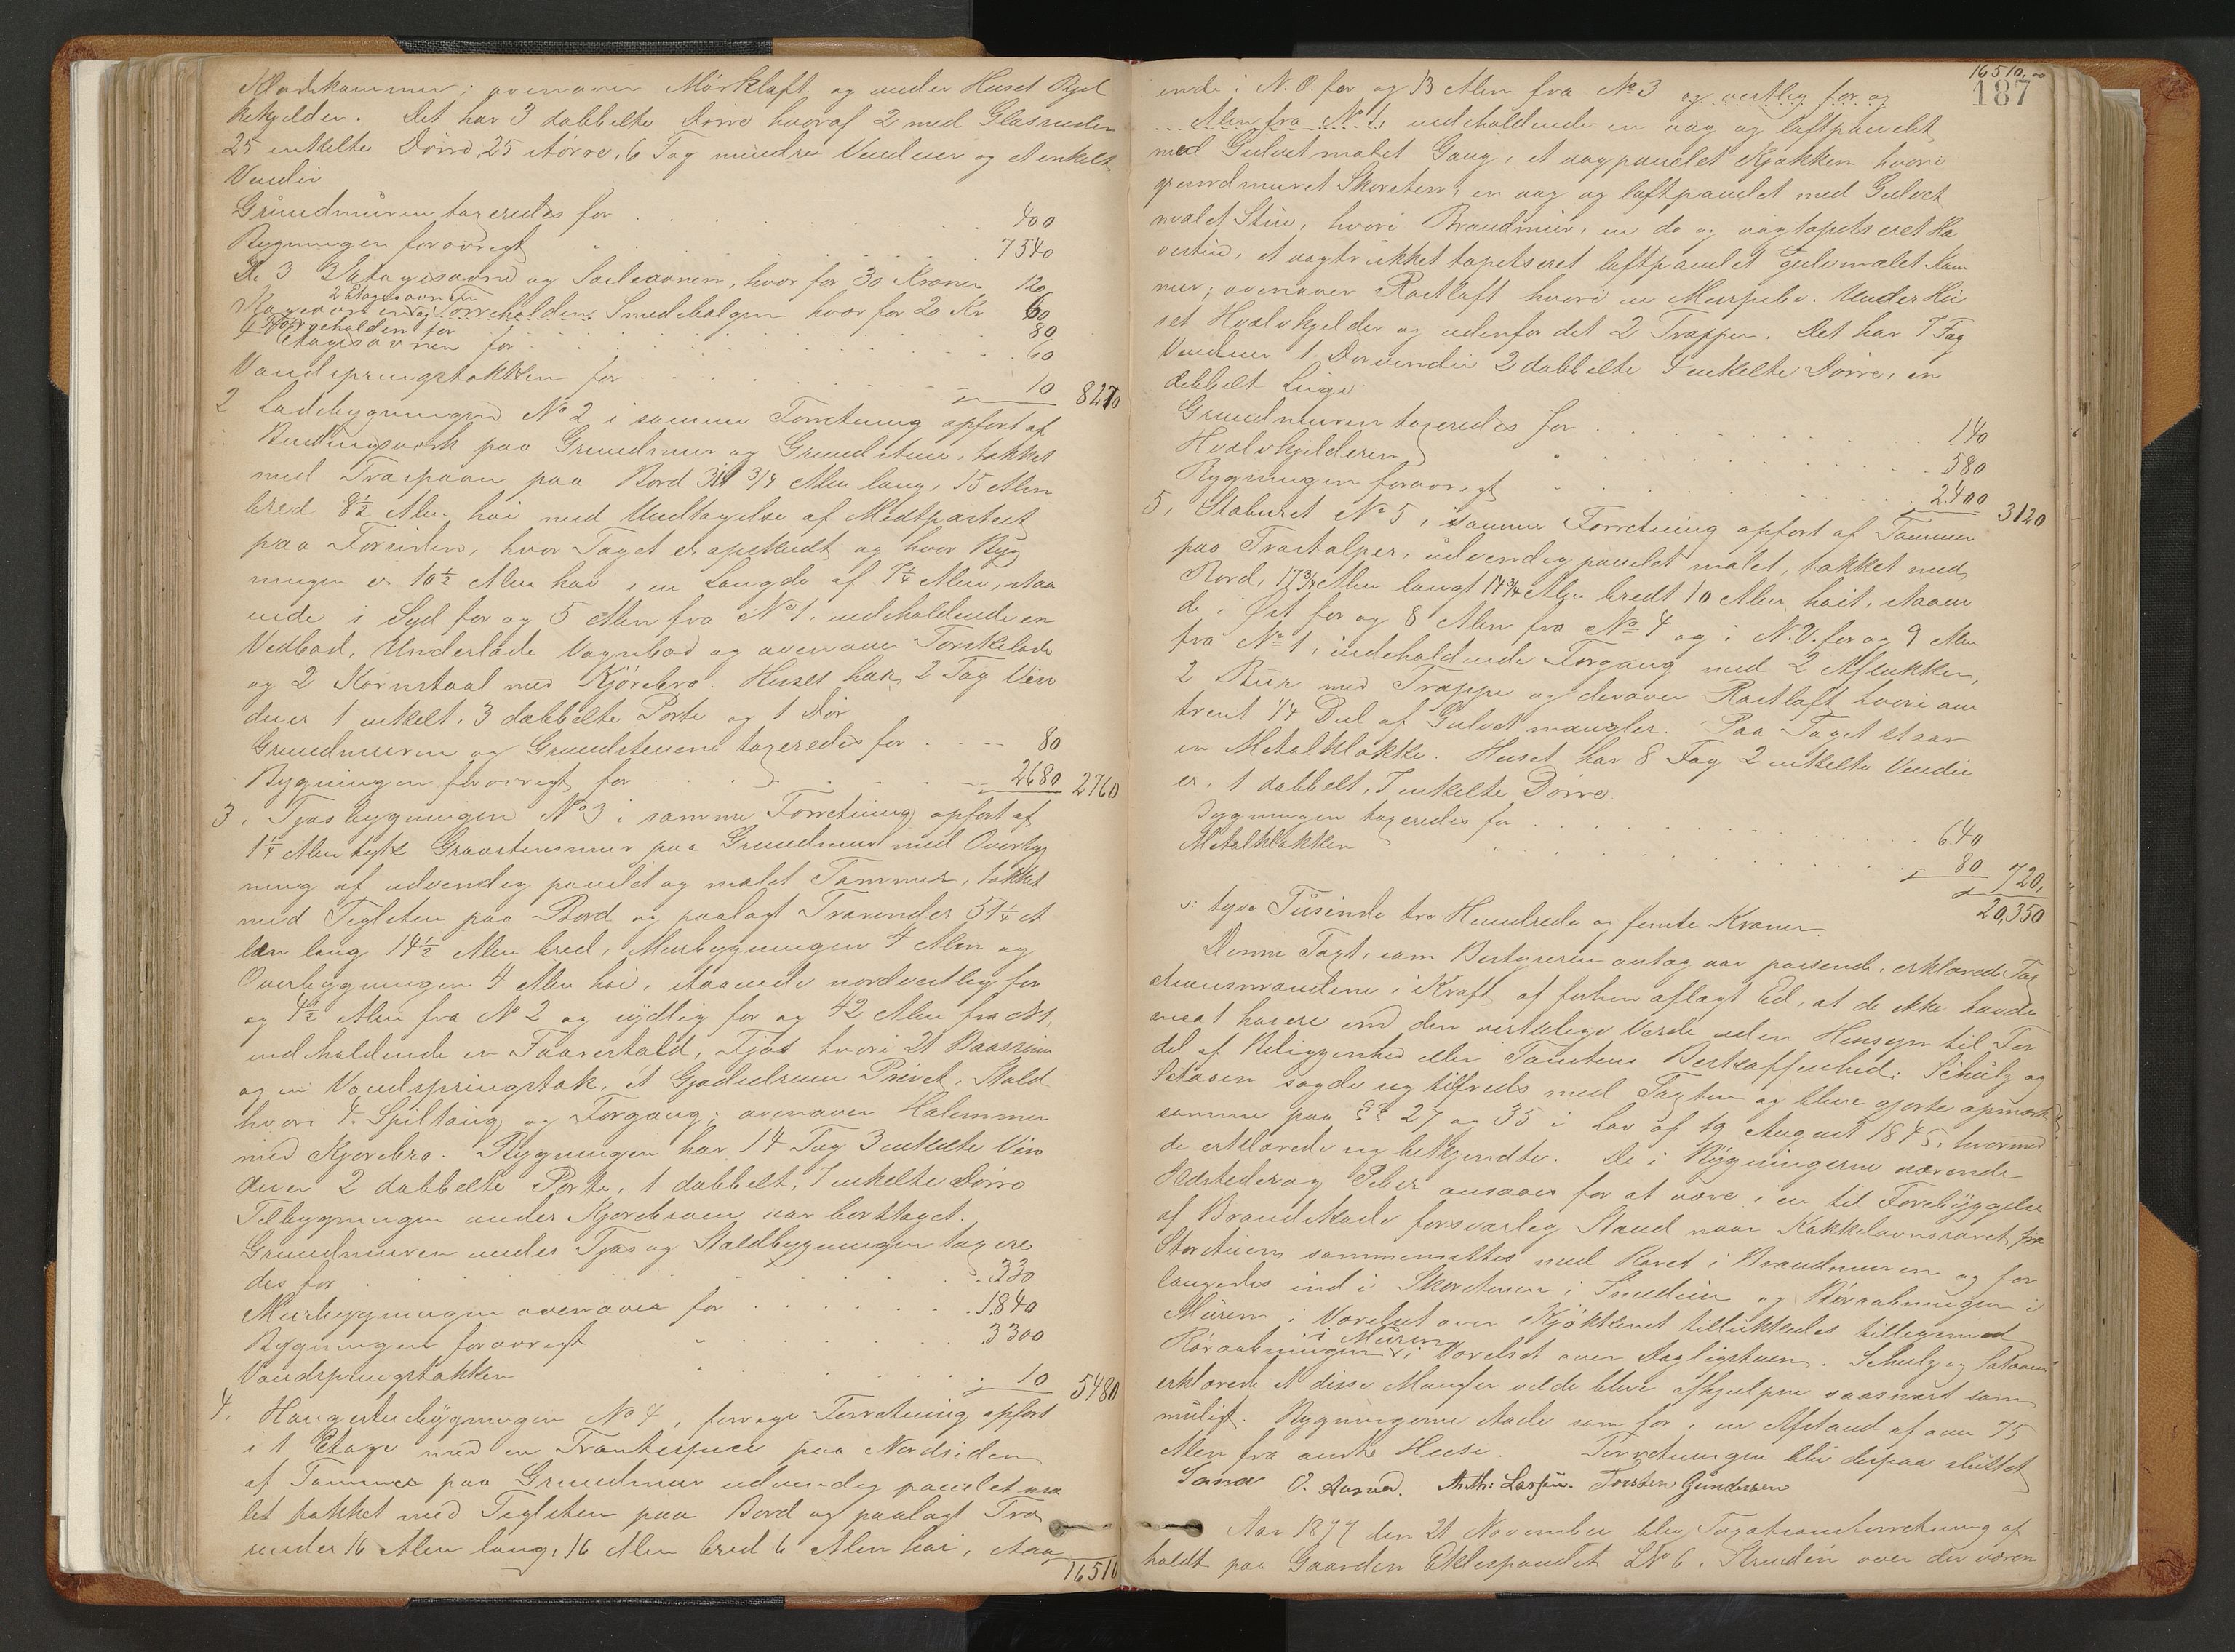 Klædekammer; ovenover Mørkloft og under Huset Bjel
kekjelder. Det har 3 dobbelte Dörre hvoraf 2 med Glasruder
25 enkelte Dörre, 25 större, 6 Fag mindre Vinduer og et enkelt
Vindu
Grundmuren taxeredes for 400
Bygningen forøvrigt 7540
De 3 3 Etagesovne og Søileovnen, hver for 30 Kroner 120
2 Etagesovnen
Kogeovnen og Torveholden Smedebælgen hver for 20 Kr 60
Torgeholden for 80
4 Etagesovnen for 60
Vandspringstokken for 10 8270
2 Ladebygningen No 2 i samme Forretning opført af
Bindingsværk paa Grundmur og Grundstene, tækket
med Træspaan paa Bord 31 3/4 Alen lang, 15 Alen
bred 8½ Alen høi med Undtagelse af Midtpartiet
paa Forsiden, hvor Taget er opskudt og hvor Byg
ningen er 10½ Alen høi i en Længde af 7¼ Alen, staa
ende i Syd for og 5 Alen fra No 1, indeholdende en
Vedbod, Underlade Vognbod og ovenover Torskelade
og 2 Kornstaal med Kjörebro. Huset har 2 Fag Vin
duer 1 enkelt, 3 dobbelte Porte og 1 Dör
Grundmuren og Grundstenene taxeredes for 80
Bygningen forøvrigt for 2680 2760
3. Fjøsbygningen No 3 i samme Forretning opført af
1¼ Alen tyk Graastensmur paa Grundmur med Overbyg
ning af udvendig panelet og malet Tømmer, tækket
med Teglsten paa Bord og paalagt Trærender 51¼ A
len lang 14½ Alen bred, Murbygningen 4 Alen og
Overbygningen 4 Alen høi, staaende nordvestlig for
og 4½ Alen fra No 2 og sydlig for og 42 Alen fra No 1,
indeholdende en Faarestald, Fjøs hvori 21 Baasrum
og en Vandspringstok, et Gjødselrum Privet, Stald
hvori 4 Spiltaug og Forgang; ovenover Halemmer
med Kjørebro. Bygningen har 14 Fag 3 enkelte Vin
duer 2 dobbelte Porte, 1 dobbelt, 7 enkelte Dörre
Tilbygningen under Kjørebroen var borttaget.
Grundmuren under Fjøs og Staldbygningen taxere
des for 330
Murbygningen ovenover for 1840
Bygningen forøvrigt " 3300
Vandspringstokken " 10 5480
4. Haugestuebygningen No 4, forrige Forretning opført
i 1 Etage med en Frontespice paa Nordsiden
af Tømmer paa Grundmur udvendig panelet ma
let tækket med Teglsten paa Bord og paalagt Træ
render 16 Alen lang, 16 Alen bred 6 Alen høi, staa
16510
16510,00
187
ende i N.O. for og 13 Alen fra No 3 og vestlig for og
Alen fra No 1, indeholdende en væg og loftpanelet
med Gulvet malet Gang, et vægpanelet Kjøkken hvori
grundmuret Skorsten, en væg og loftpanelet med Gulvet
malet Stue, hvori Brandmur, en do og vægtapetseret Ha
vestue, et vægtrukket tapetseret loftpanelet gulvmalet Kam
mer; ovenover Röstloft hvori en Murpibe. Under Hu
set Hvælvkjelder og udenfor det 2 Trapper. Det har 7 Fag
Vinduer 1 Dørvindu 2 dobbelte 4 enkelte Dörre, en
dobbelt Luge
Grundmuren taxeredes for 140
Hvælvkjelderen " 580
Bygningen forøvrigt 2400 3120
5. Staburet No 5, i samme Forretning opført af Tømmer
paa Træstolper, udvendig panelet malet, tækket med
Bord, 17¾ Alen langt 14¾ Alen bredt 10 Alen høit, staaen
de i Øst for og 8 Alen fra No 4 og i N.V. for og 9 Alen
fra No 1, indeholdende Forgang med 2 Aflukker,
2 Bur med Trappe og derover Röstloft hvori om
trent 1/4 Del af Gulvet mangler. Paa Taget staar
en Metalklokke. Huset har 8 Fag 2 enkelte Vindu
er, 1 dobbelt, 7 enkelte Dörre.
Bygningen taxeredes for 640
Metalklokken " 80 720,
20,350
s: tyve Tusinde tre Hundrede og femti Kroner.
Denne Taxt, som Bestyreren antog var passende, erklærede Tax
ationsmændene i Kraft af forhen aflagt Ed, at de ikke havde
ansat høiere end den virkelige Værdi uden Hensyn til For
del af Beliggenhed eller Tomtens Beskaffenhed. Schulz og
sagde sig tilfreds med Taxten og bleve gjorte opmærk
somme paa §§ 27 og 35 i Lov af 19 August 1845, hvormed
de erklærede sig bekjendte. De i Bygningerne værende
Ildsteder og Piber ansaaes for at være i en til Forebyggelse
af Brandskade forsvarlig Stand naar Kakkelovnsrøret fra
Storstuen sammensattes med Røret i Brandmuren og for
længedes ind i Skorstenen i Smedien og Röraabningen i
Muren i Værelset over Kjøkkenet tillukkedes tilligemed
i Muren
Röraabningen i Værelset over Dagligstuen. Schulz og
erklærede at disse Mangler vilde blive afhjulpne saasnart som
muligt. Bygningerne stode som før i en Afstand af over 75
Alen fra andre Huse. Forretningen blev derpaa sluttet
O. Aarnæs. Anth: Larsen. Torsten Gundersen
Aar 1877 den 21 November blev Taxationsforretning af
holdt paa Gaarden LNo 6, over de væren